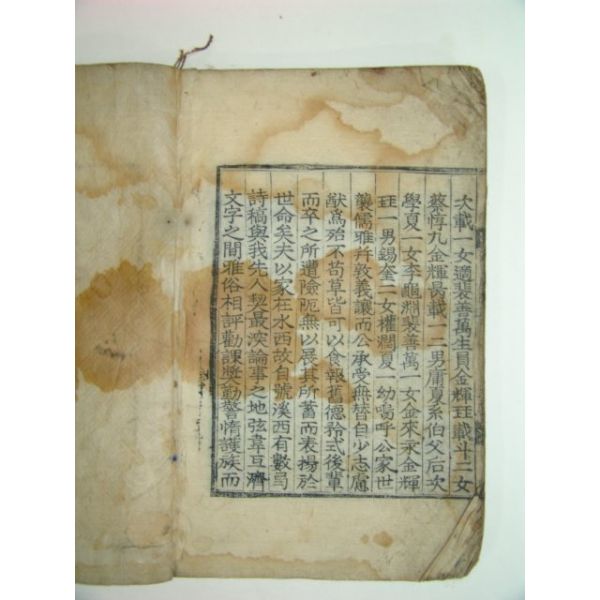 次載一女適裴善萬生員金輝玨載斗二女
蔡惇九金輝長載一二男庸夏系伯父后次
學夏一女李龜淵裴善萬一女金來永金輝
玨一男錫奎二女權潤夏一幼嗚呼公家世
襲儒雅幷敦義讓而公承受無替自少志慮
猷爲殆不苟草皆可以食報舊德矜式後輩
而卒之所遭險阨無以展其所蓄而表揚於
世命矣夫以家在水西故自號溪西有數弓
詩稿與我先人契最深論事之地弦韋互濟
文字之間雅俗相評勸課奬勤警惰護族而